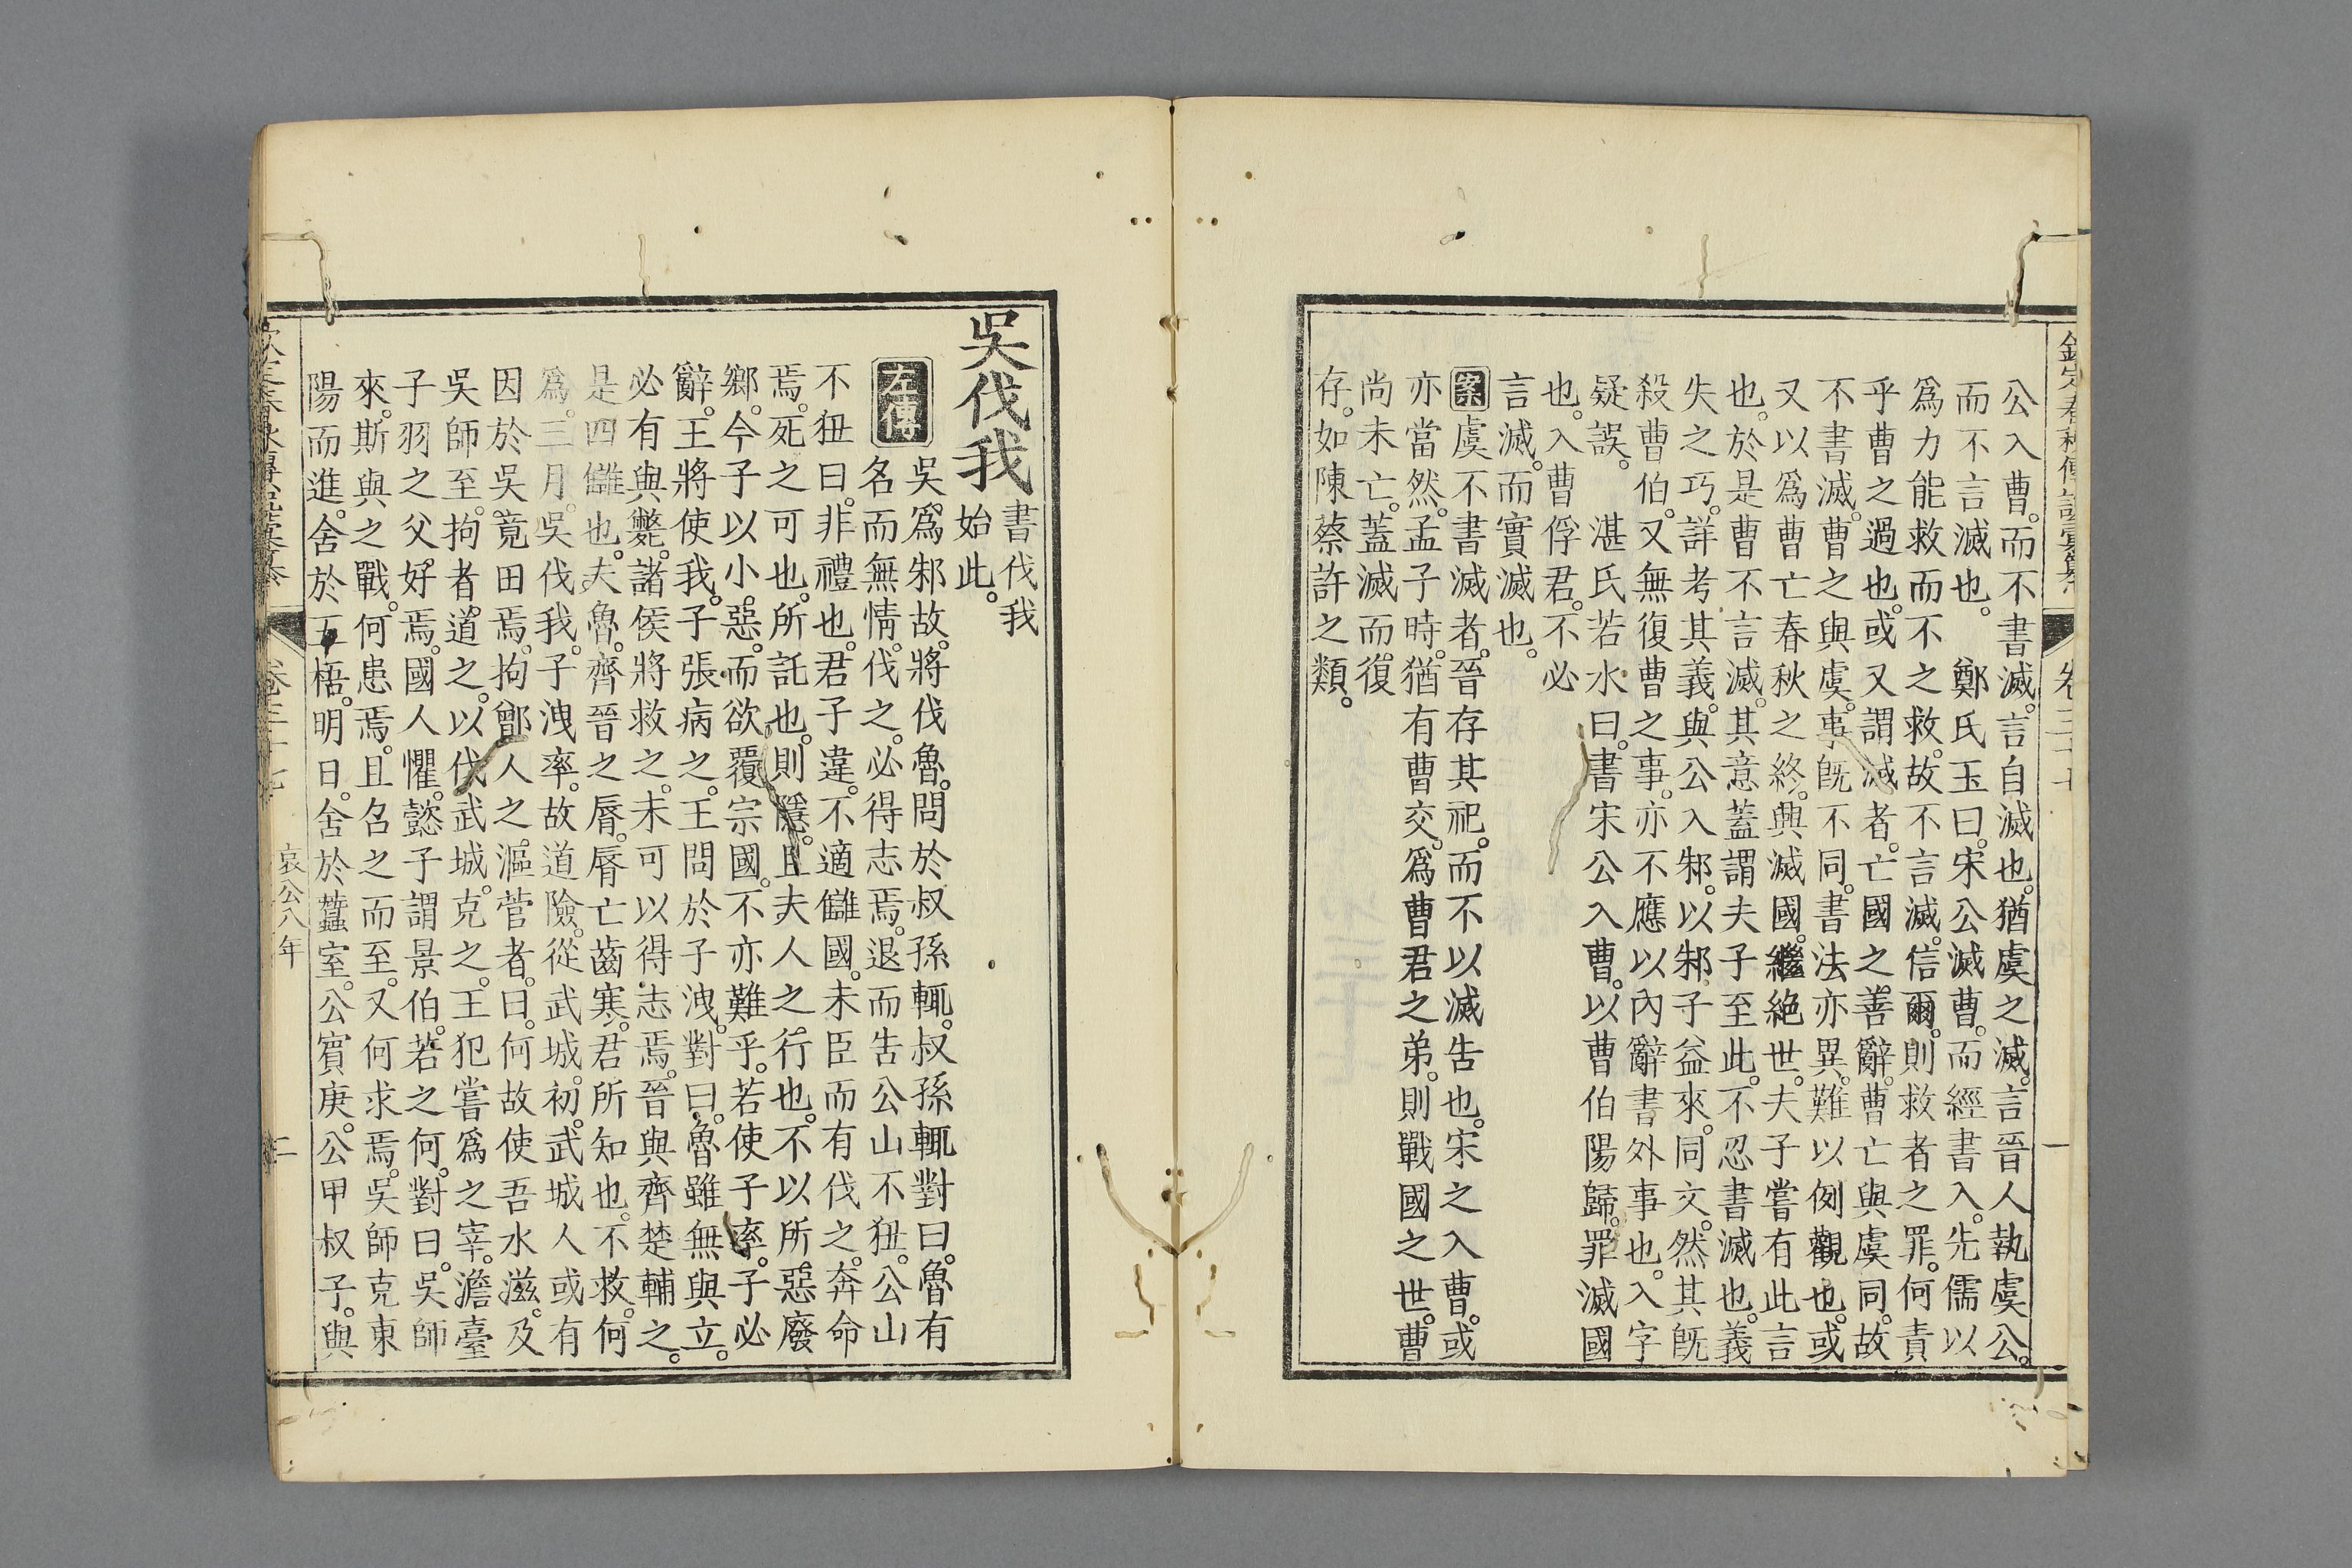 欽定春秋傳說彙纂 卷三十七 一
公入曹。而不書滅。言自滅也。猶虞之滅。言晉人執虞公。
而不言滅也。 鄭氏玉曰。宋公滅曹。而經書入。先儒以
爲力能救而不之救。故不言滅。信爾。則救者之罪。何責
乎曹之過也。或又謂滅者。亡國之善辭。曹亡與虞同。故
不書滅。曹之與虞。事旣不同。書法亦異。難以例觀也。或
又以爲曹亡春秋之終。興滅國。繼絕世。夫子嘗有此言
也。於是曹不言滅。其意蓋謂夫子至此。不忍書滅也。義
失之巧。詳考其義。與公入邾。以邾子益來。同文。然其旣
殺曹伯。又無復曹之事。亦不應以內辭書外事也。入字
疑誤。 湛氏若水曰。書宋公入曹。以曹伯陽歸。罪滅國
也。入曹俘君。不必
言滅。而實滅也。
案虞不書滅者。晉存其祀。而不以滅告也。宋之入曹。或
亦當然。孟子時。猶有曹交。爲曹君之弟。則戰國之世。曹
尚未亡。蓋滅而復
存。如陳蔡許之類。
吳伐我
書伐我
始此。
左傳
吳爲邾故。將伐魯。問於叔孫輒。叔孫輒對曰。魯有
名而無情。伐之。必得志焉。退而告公山不狃。公山
不狃曰。非禮也。君子違。不適讎國。未臣而有伐之。奔命
焉。死之可也。所託也。則隱。且夫人之行也。不以所惡廢
鄉。今子以小惡。而欲覆宗國。不亦難乎。若使子率。子必
辭。王將使我。子張病之。王問於子洩。對曰。魯雖無與立。
必有與斃。諸侯將救之。未可以得志焉。晉與齊楚輔之。
是四讎也。夫魯。齊晉之脣。脣亡齒寒。君所知也。不救。何
爲。三月。吳伐我。子洩率。故道險。從武城。初。武城人或有
因於吳。竟田焉。拘鄫人之漚菅者。曰。何故使吾水滋。及
吳師至。拘者。道之。以伐武城。克之。王犯嘗爲之宰。澹臺
子羽之父。好焉。國人懼。懿子謂景伯。若之何。對曰。吳師
來。斯與之戰。何患焉。且召之而至。又何求焉。吳師克東
陽而進。舍於五梧。明日。舍於蠶室。公賓庚。公甲叔子。與
欽定春秋傳說彙纂 卷三十七 哀公八年 二